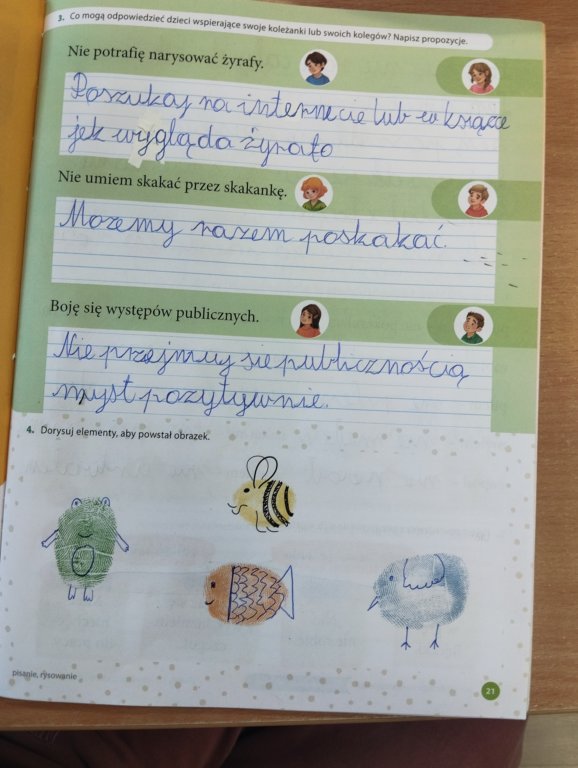 3. Co mogą odpowiedzieć dzieci wspierające swoje koleżanki lub swoich kolegów? Napisz propozycje.
Nie potrafię narysować żyrafy.
Poszukaj na internecie lub w książce
jek wygląda żyrafo
Nie umiem skakać przez skakankę.
Możemy razem poskakać.
Boję się występów publicznych.
Nie przejmuj sie publicznością
myśl pozytywnie.
4. Dorysuj elementy, aby powstał obrazek.
pisanie, rysowanie
21